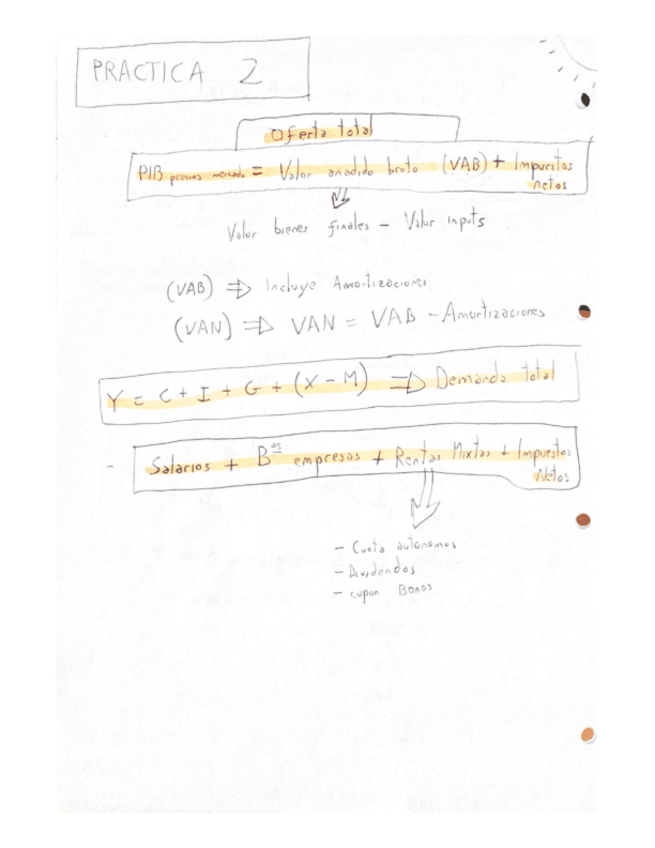 PRACTICA 2
Oferta total
PIB precios mercado = Valor añadido bruto (VAB) + Impuestos
netos
Valor bienes finales - Valor inputs
(VAB) ⇒ Incluye Amortizaciones
(VAN) ⇒ VAN = VAB - Amortizaciones
Y = C + I + G + (X - M) ⇒ Demanda total
- Salarios + Bos empresas + Rentas Mixtas + Impuestos
Netos
- Cuota autónomos
- Dividendos
- cupon Bonos